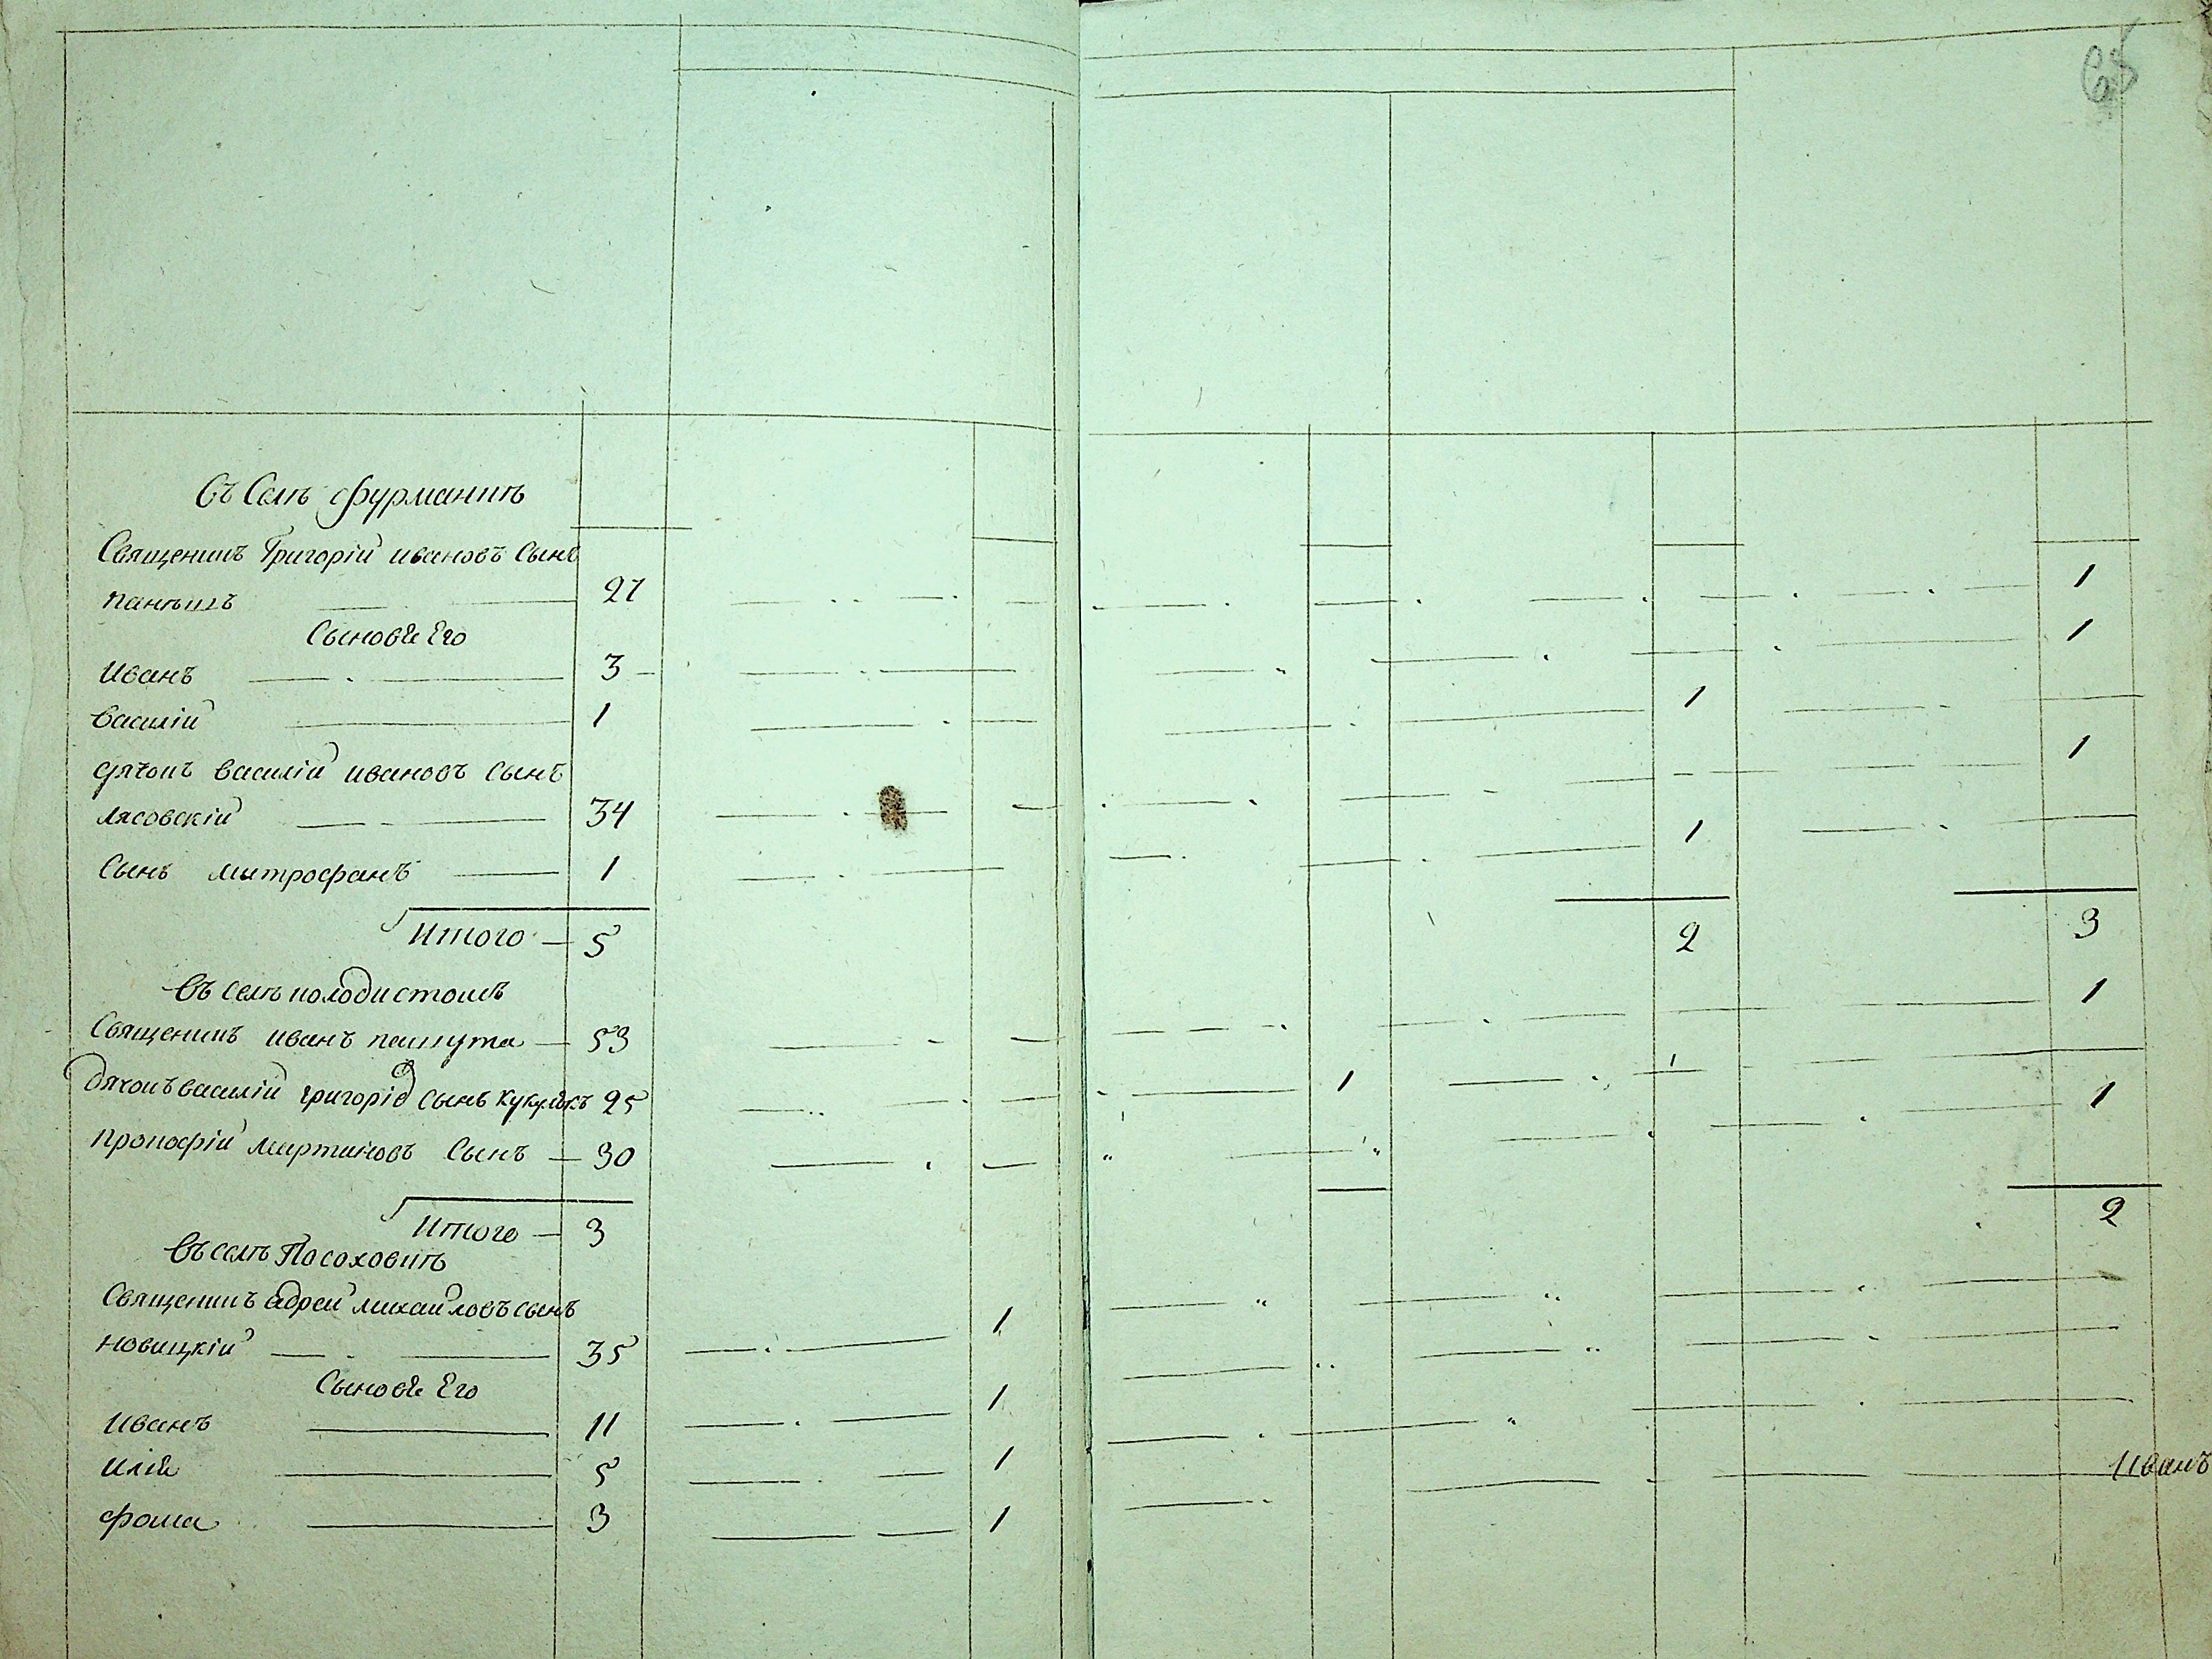 65
Въ Селѣ Фурманкѣ
Священикъ Григорій ивановъ Сынъ
27 1
Сыновѣ Его
Иванъ 3 1
Василій 1 1
дячокъ василій ивановъ Сынъ
Лясовскій 34 1
Сынъ митрофанъ 1 1
Итого 5 2 3
Въ селѣ колодистомъ
Священикъ иванъ пашута 53 1
Дячокъ василій григоріев Сынъ кукуль 25 1
прокофій мартиновъ Сынъ 30 1
Итого 3 2
Въ селѣ Посоховкѣ
Священикъ Адреи михаиловъ сынъ
Новицкій 35 1
Сыновѣ Его
Иванъ 11 1
Илія 5 1
фома 3 1
Иванъ